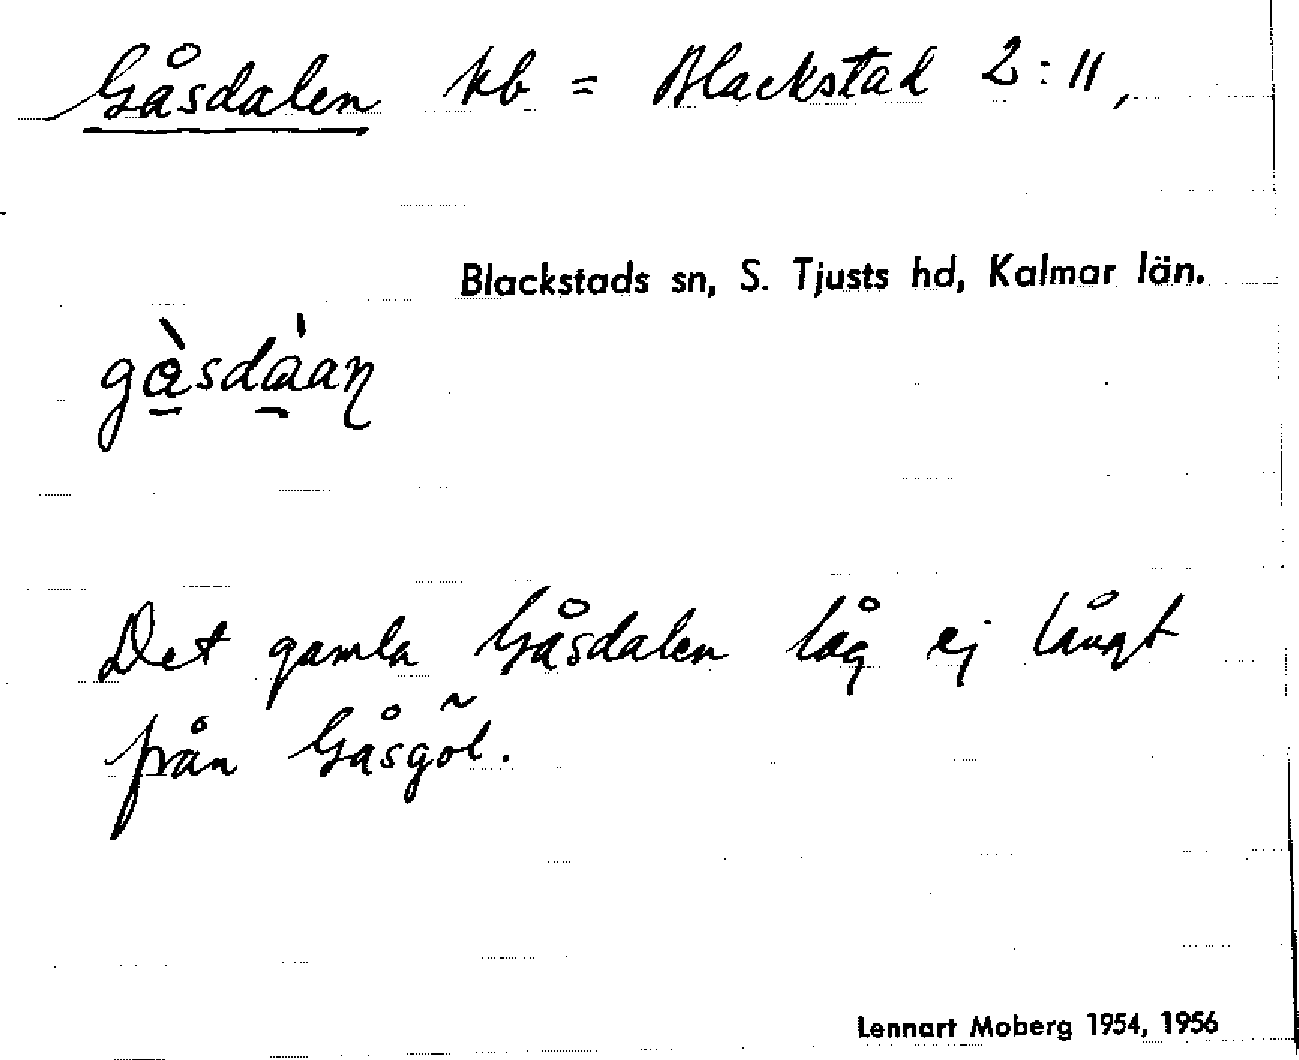 Gåsdalen kb = Blackstad 2:11,
Blackstads sn, S. Tjusts hd, Kalmar län.
Det gamla Gåsdalen låg ej långt
från Gåsgöl.
Lennart Moberg 1954, 1956